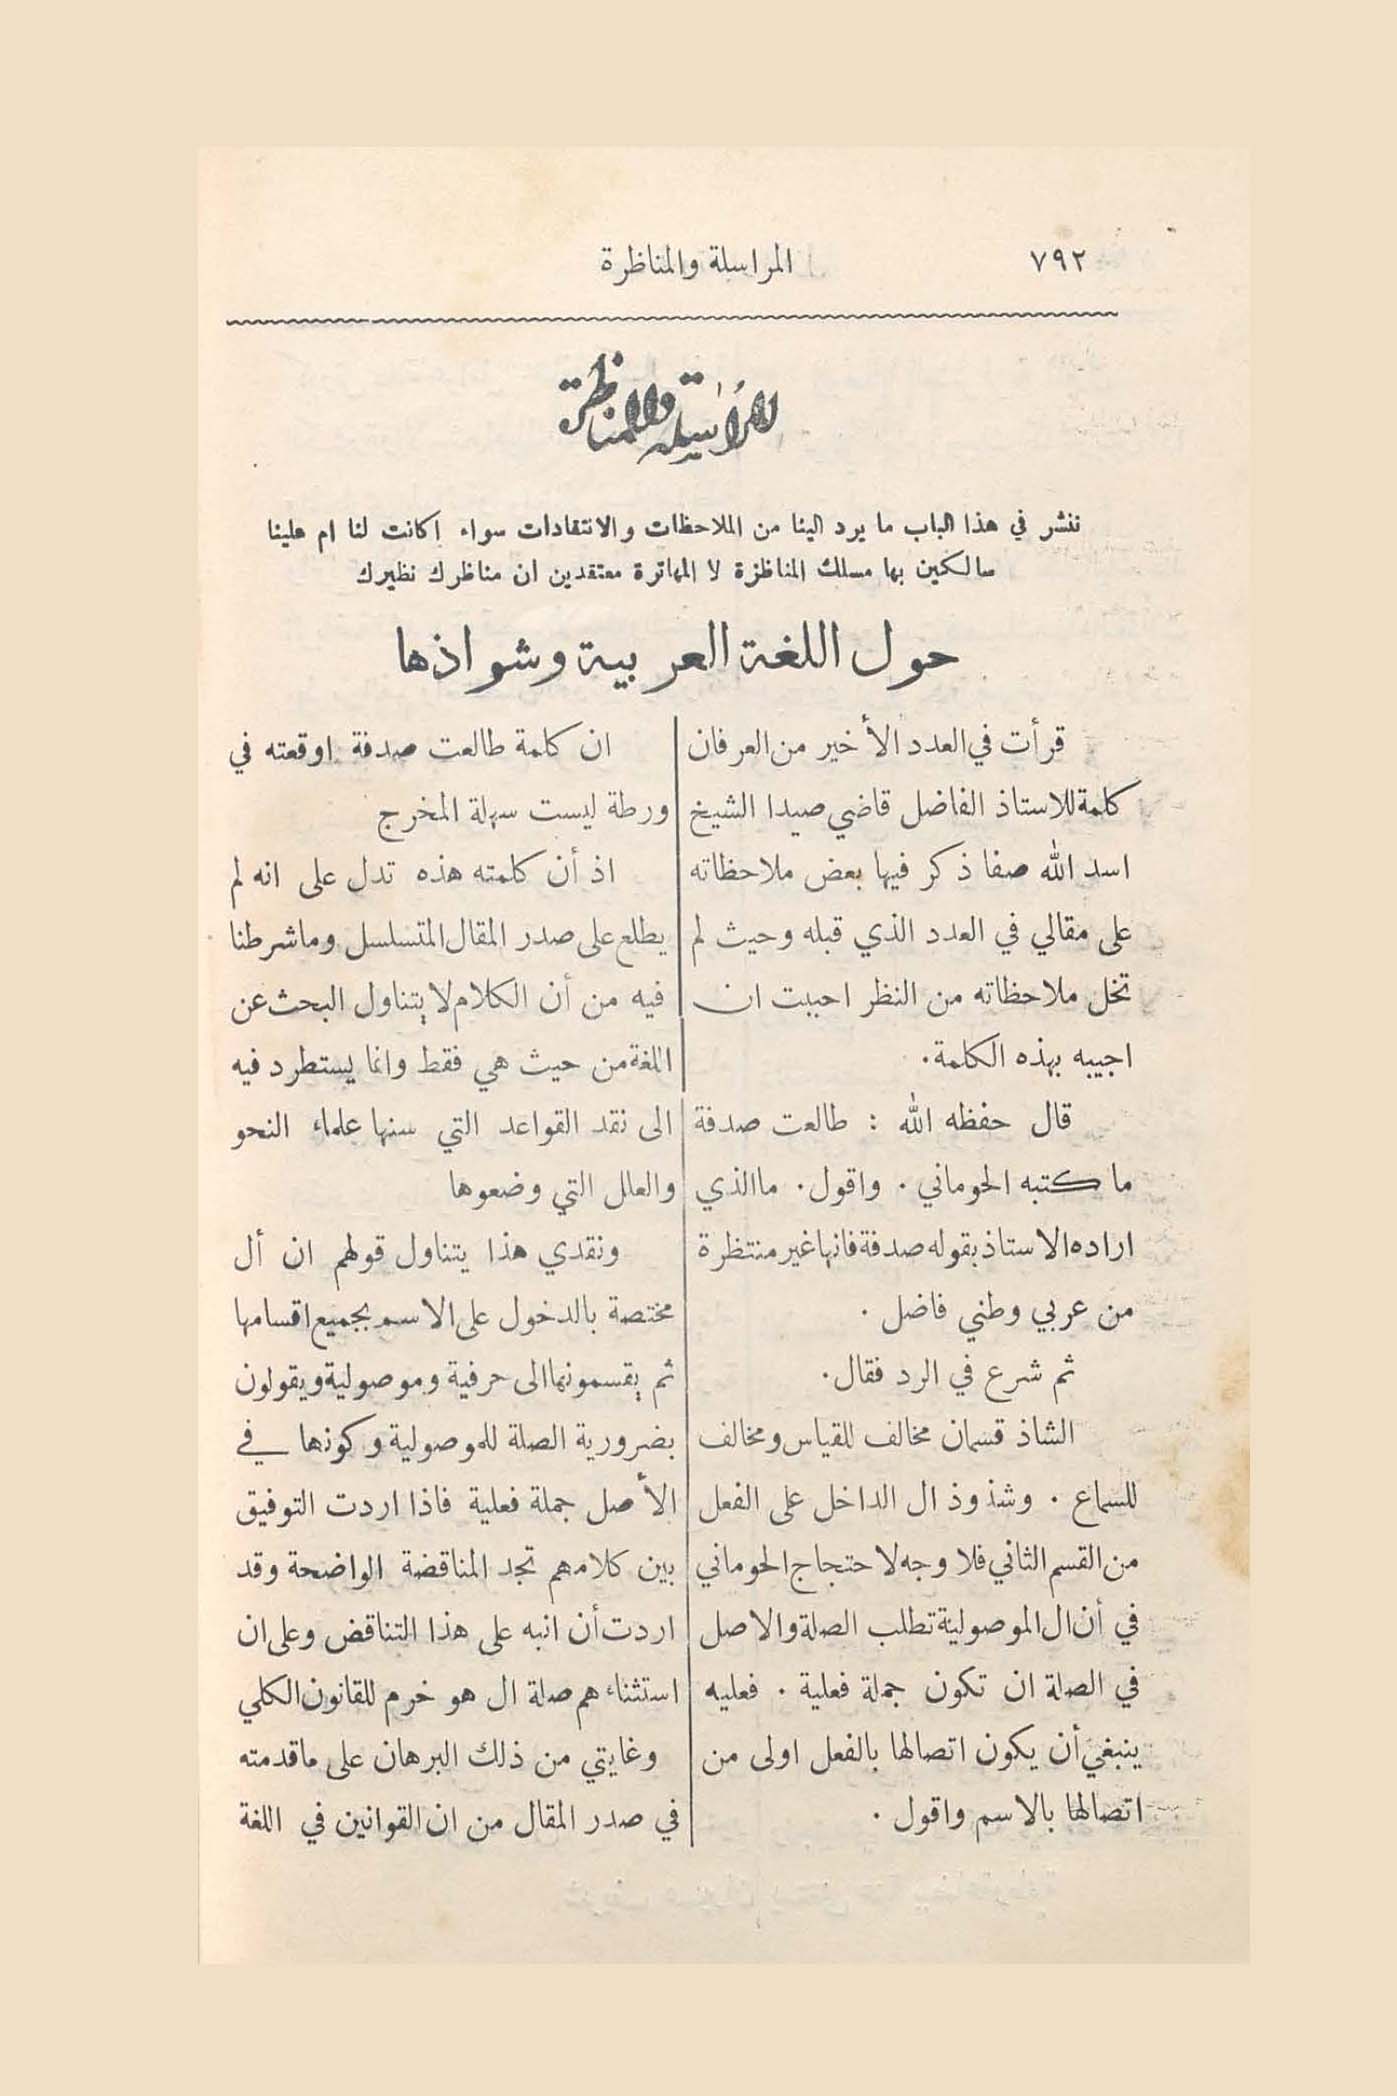 ٧٩٢
المراسلة والمناظرة
المراسلة والمناظرة
ننشر في هذا الباب ما يرد الينا من الملاحظات والانتقادات سواء اكانت لنا ام علينا
سالكين بها مسلك المناظرة لا المهاترة معتقدين ان مناظرك نظيرك
حول اللغة العربية وشواذها
قرأت في العدد الأخير من العرفان
كلمة للاستاذ الفاضل قاضي صيدا الشيخ
اسد الله صفا ذكر فيها بعض ملاحظاته
على مقالي في العدد الذي قبله وحيث لم
تخل ملاحظاته من النظر احببت ان
اجيبه بهذه الكلمة.
قال حفظه الله : طالعت صدفة
ما كتبه الحوماني . واقول . ما الذي
اراده الاستاذ بقوله صدفة فانها غير منتظرة
من عربي وطني فاضل .
ثم شرع في الرد فقال.
الشاذ قسمان مخالف للقياس ومخالف
للسماع . وشذوذ ال الداخل على الفعل
من القسم الثاني فلا وجه لاحتجاج الحوماني
في أن ال الموصولية تطلب الصلة والاصل
في الصلة ان تكون جملة فعلية . فعليه
ينبغي أن يكون اتصالها بالفعل اولى من
اتصالها بالاسم واقول .
ان كلمة طالعت صدفة اوقعته في
ورطة ليست سهلة المخرج
اذ أن كلمته هذه تدل على انه لم
يطلع على صدر المقال المتسلسل وما شرطنا
فيه من أن الكلام لا يتناول البحث عن
اللغة من حيث هي فقط وانما يستطرد فيه
الى نقد القواعد التي سنها علماء النحو
والعلل التي وضعوها
ونقدي هذا يتناول قولهم ان أل
مختصة بالدخول على الاسم بجميع اقسامها
ثم يقسمونها الى حرفية وموصولية ويقولون
بضرورية الصلة للموصولية وكونها في
الأصل جملة فعلية فاذا اردت التوفيق
بين كلامهم تجد المناقضة الواضحة وقد
اردت أن انبه على هذا التناقض وعلى ان
استثناءهم صلة ال هو خرم للقانون الكلي
وغايتي من ذلك البرهان على ما قدمته
في صدر المقال من ان القوانين في اللغة